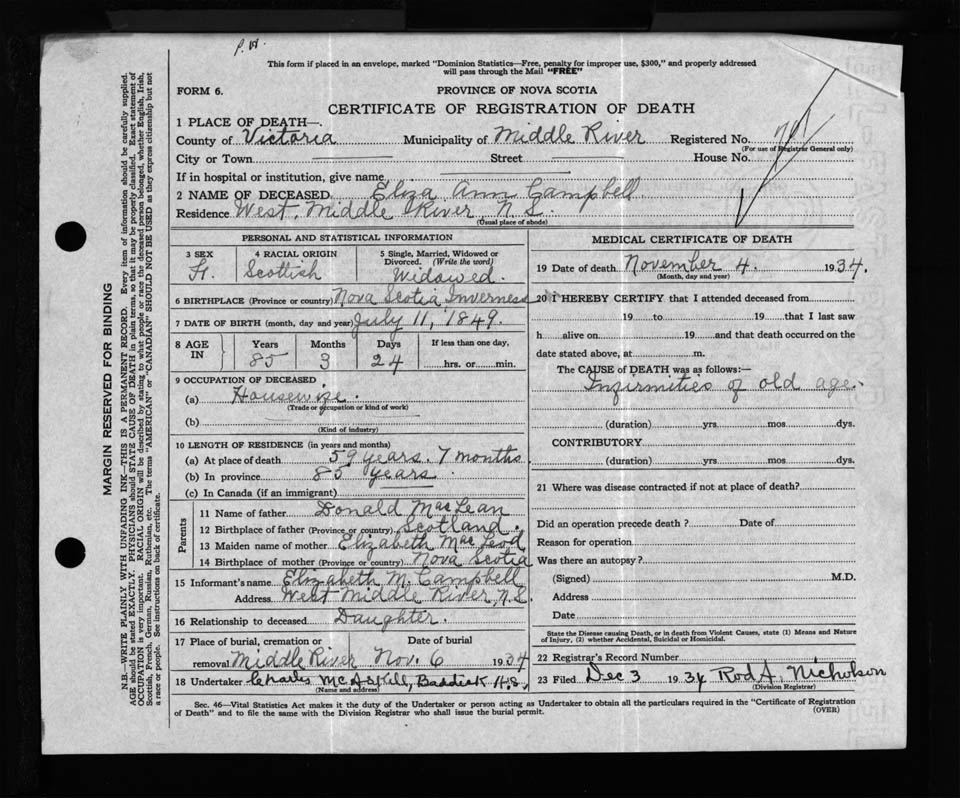 P. H.
This form if placed in an envelope, marked "Dominion Statistics—Free, penalty for improper use, $300," and properly addressed
will pass through the Mail "FREE"
FORM 6.
PROVINCE OF NOVA SCOTIA
CERTIFICATE OF REGISTRATION OF DEATH
1 PLACE OF DEATH—
County of Victoria Municipality of Middle River Registered No.
(For use of Registrar General only)
City or Town Street House No.
If in hospital or institution, give name
2 NAME OF DECEASED Eliza Ann Campbell
Residence West Middle River N.S.
(Usual place of abode)
PERSONAL AND STATISTICAL INFORMATION
3 SEX 4 RACIAL ORIGIN 5 Single, Married, Widowed or Divorced. (Write the word)
F. Scottish Widowed.
6 BIRTHPLACE (Province or country) Nova Scotia Inverness
7 DATE OF BIRTH (month, day and year) July 11, 1849.
8 AGE IN Years Months Days If less than one day,
85 3 24 hrs. or min.
9 OCCUPATION OF DECEASED
(a) Housewife.
(Trade or occupation or kind of work)
(b)
(Kind of industry)
10 LENGTH OF RESIDENCE (in years and months)
(a) At place of death 59 years. 7 months.
(b) In province 85 years.
(c) In Canada (if an immigrant)
Parents
11 Name of father Donald MacLean
12 Birthplace of father (Province or country) Scotland.
13 Maiden name of mother Elizabeth MacLeod
14 Birthplace of mother (Province or country) Nova Scotia
15 Informant's name Elizabeth M. Campbell
Address West Middle River, N.S.
16 Relationship to deceased Daughter.
17 Place of burial, cremation or Date of burial
removal Middle River Nov. 6 1934
18 Undertaker Charles McAskill, Baddeck N.S.
(Name and address)
MEDICAL CERTIFICATE OF DEATH
19 Date of death November 4. 1934.
(Month, day and year)
20 I HEREBY CERTIFY that I attended deceased from
19 to 19 that I last saw
h alive on 19 and that death occurred on the
date stated above, at m.
The CAUSE of DEATH was as follows:—
Infirmities of old age.
(duration) yrs. mos. dys.
CONTRIBUTORY
(duration) yrs. mos. dys.
21 Where was disease contracted if not at place of death?
Did an operation precede death? Date of
Reason for operation
Was there an autopsy?
(Signed) M.D.
Address
Date
State the Disease causing Death, or in death from Violent Causes, state (1) Means and Nature
of Injury, (2) whether Accidental, Suicidal or Homicidal.
22 Registrar's Record Number
23 Filed Dec 3 1934 Rod A. Nicholson
(Division Registrar)
Sec. 46—Vital Statistics Act makes it the duty of the Undertaker or person acting as Undertaker to obtain all the particulars required in the "Certificate of Registration
of Death" and to file the same with the Division Registrar who shall issue the burial permit.
(OVER)
MARGIN RESERVED FOR BINDING
N.B.—WRITE PLAINLY WITH UNFADING INK—THIS IS A PERMANENT RECORD. Every item of information should be carefully supplied.
AGE should be stated EXACTLY. PHYSICIANS should STATE CAUSE OF DEATH in plain terms, so that it may be properly classified. Exact statement of
OCCUPATION is very important. RACIAL ORIGIN will be described by stating to what people or race the deceased person belonged, whether English, Irish,
Scottish, French, German, Russian, Ruthenian, etc. The terms "AMERICAN" or "CANADIAN" SHOULD NOT BE USED as they express citizenship but not
a race or people. See instructions on back of certificate.